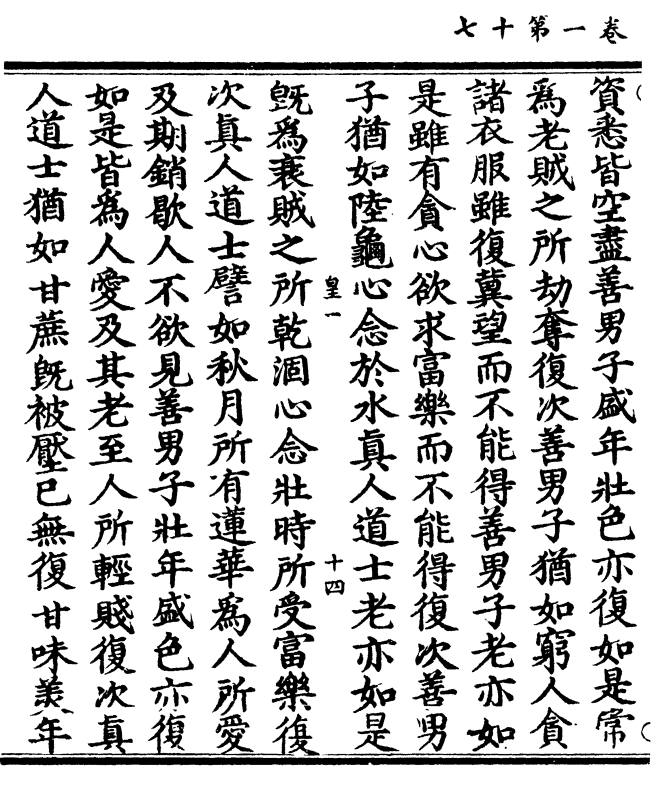 卷一第十七
資悉皆空盡善男子盛年壯色亦復如是常
爲老賊之所劫奪復次善男子猶如窮人貪
諸衣服雖復冀望而不能得善男子老亦如
是雖有貪心欲求富樂而不能得復次善男
子猶如陸龜心念於水真人道士老亦如是
皇一
十四
旣爲衰賊之所乾涸心念壯時所受富樂復
次真人道士譬如秋月所有蓮華爲人所愛
及期銷歇人不欲見善男子壯年盛色亦復
如是皆爲人愛及其老至人所輕賤復次真
人道士猶如甘蔗旣被壓已無復甘味美年